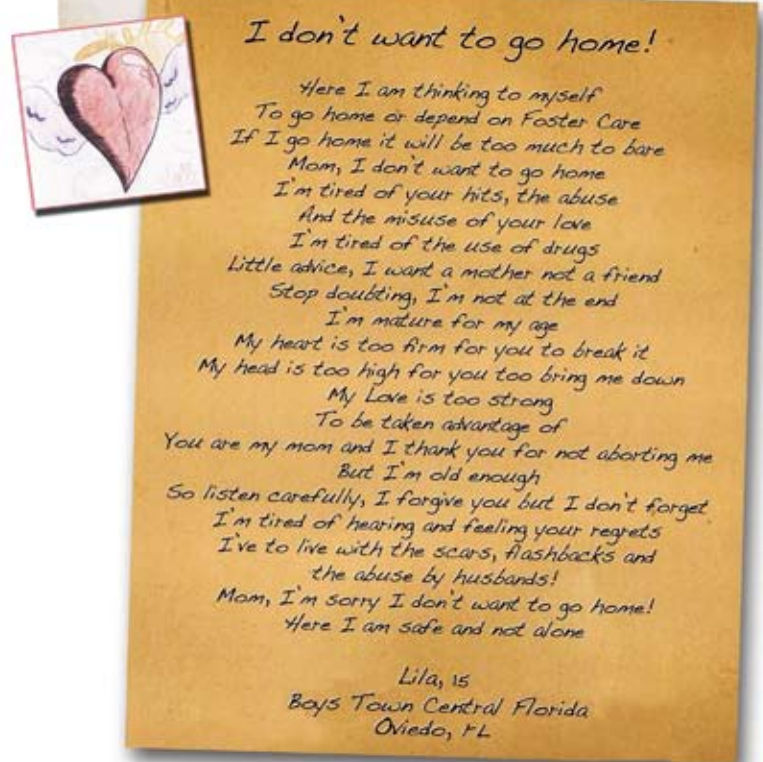 I don't want to go home!
Here I am thinking to myself
To go home or depend on Foster Care
If I go home it will be too much to bare
Mom, I don't want to go home
I'm tired of your hits, the abuse
And the misuse of your love
I'm tired of the use of drugs
Little advice, I want a mother not a friend
Stop doubting, I'm not at the end
I'm mature for my age
My heart is too firm for you to break it
My head is too high for you too bring me down
My Love is too strong
To be taken advantage of
You are my mom and I thank you for not aborting me
But I'm old enough
So listen carefully, I forgive you but I don't forget
I'm tired of hearing and feeling your regrets
I've to live with the scars, flashbacks and
the abuse by husbands!
Mom, I'm sorry I don't want to go home!
Here I am safe and not alone
Lila, 15
Boys Town Central Florida
Oviedo, FL